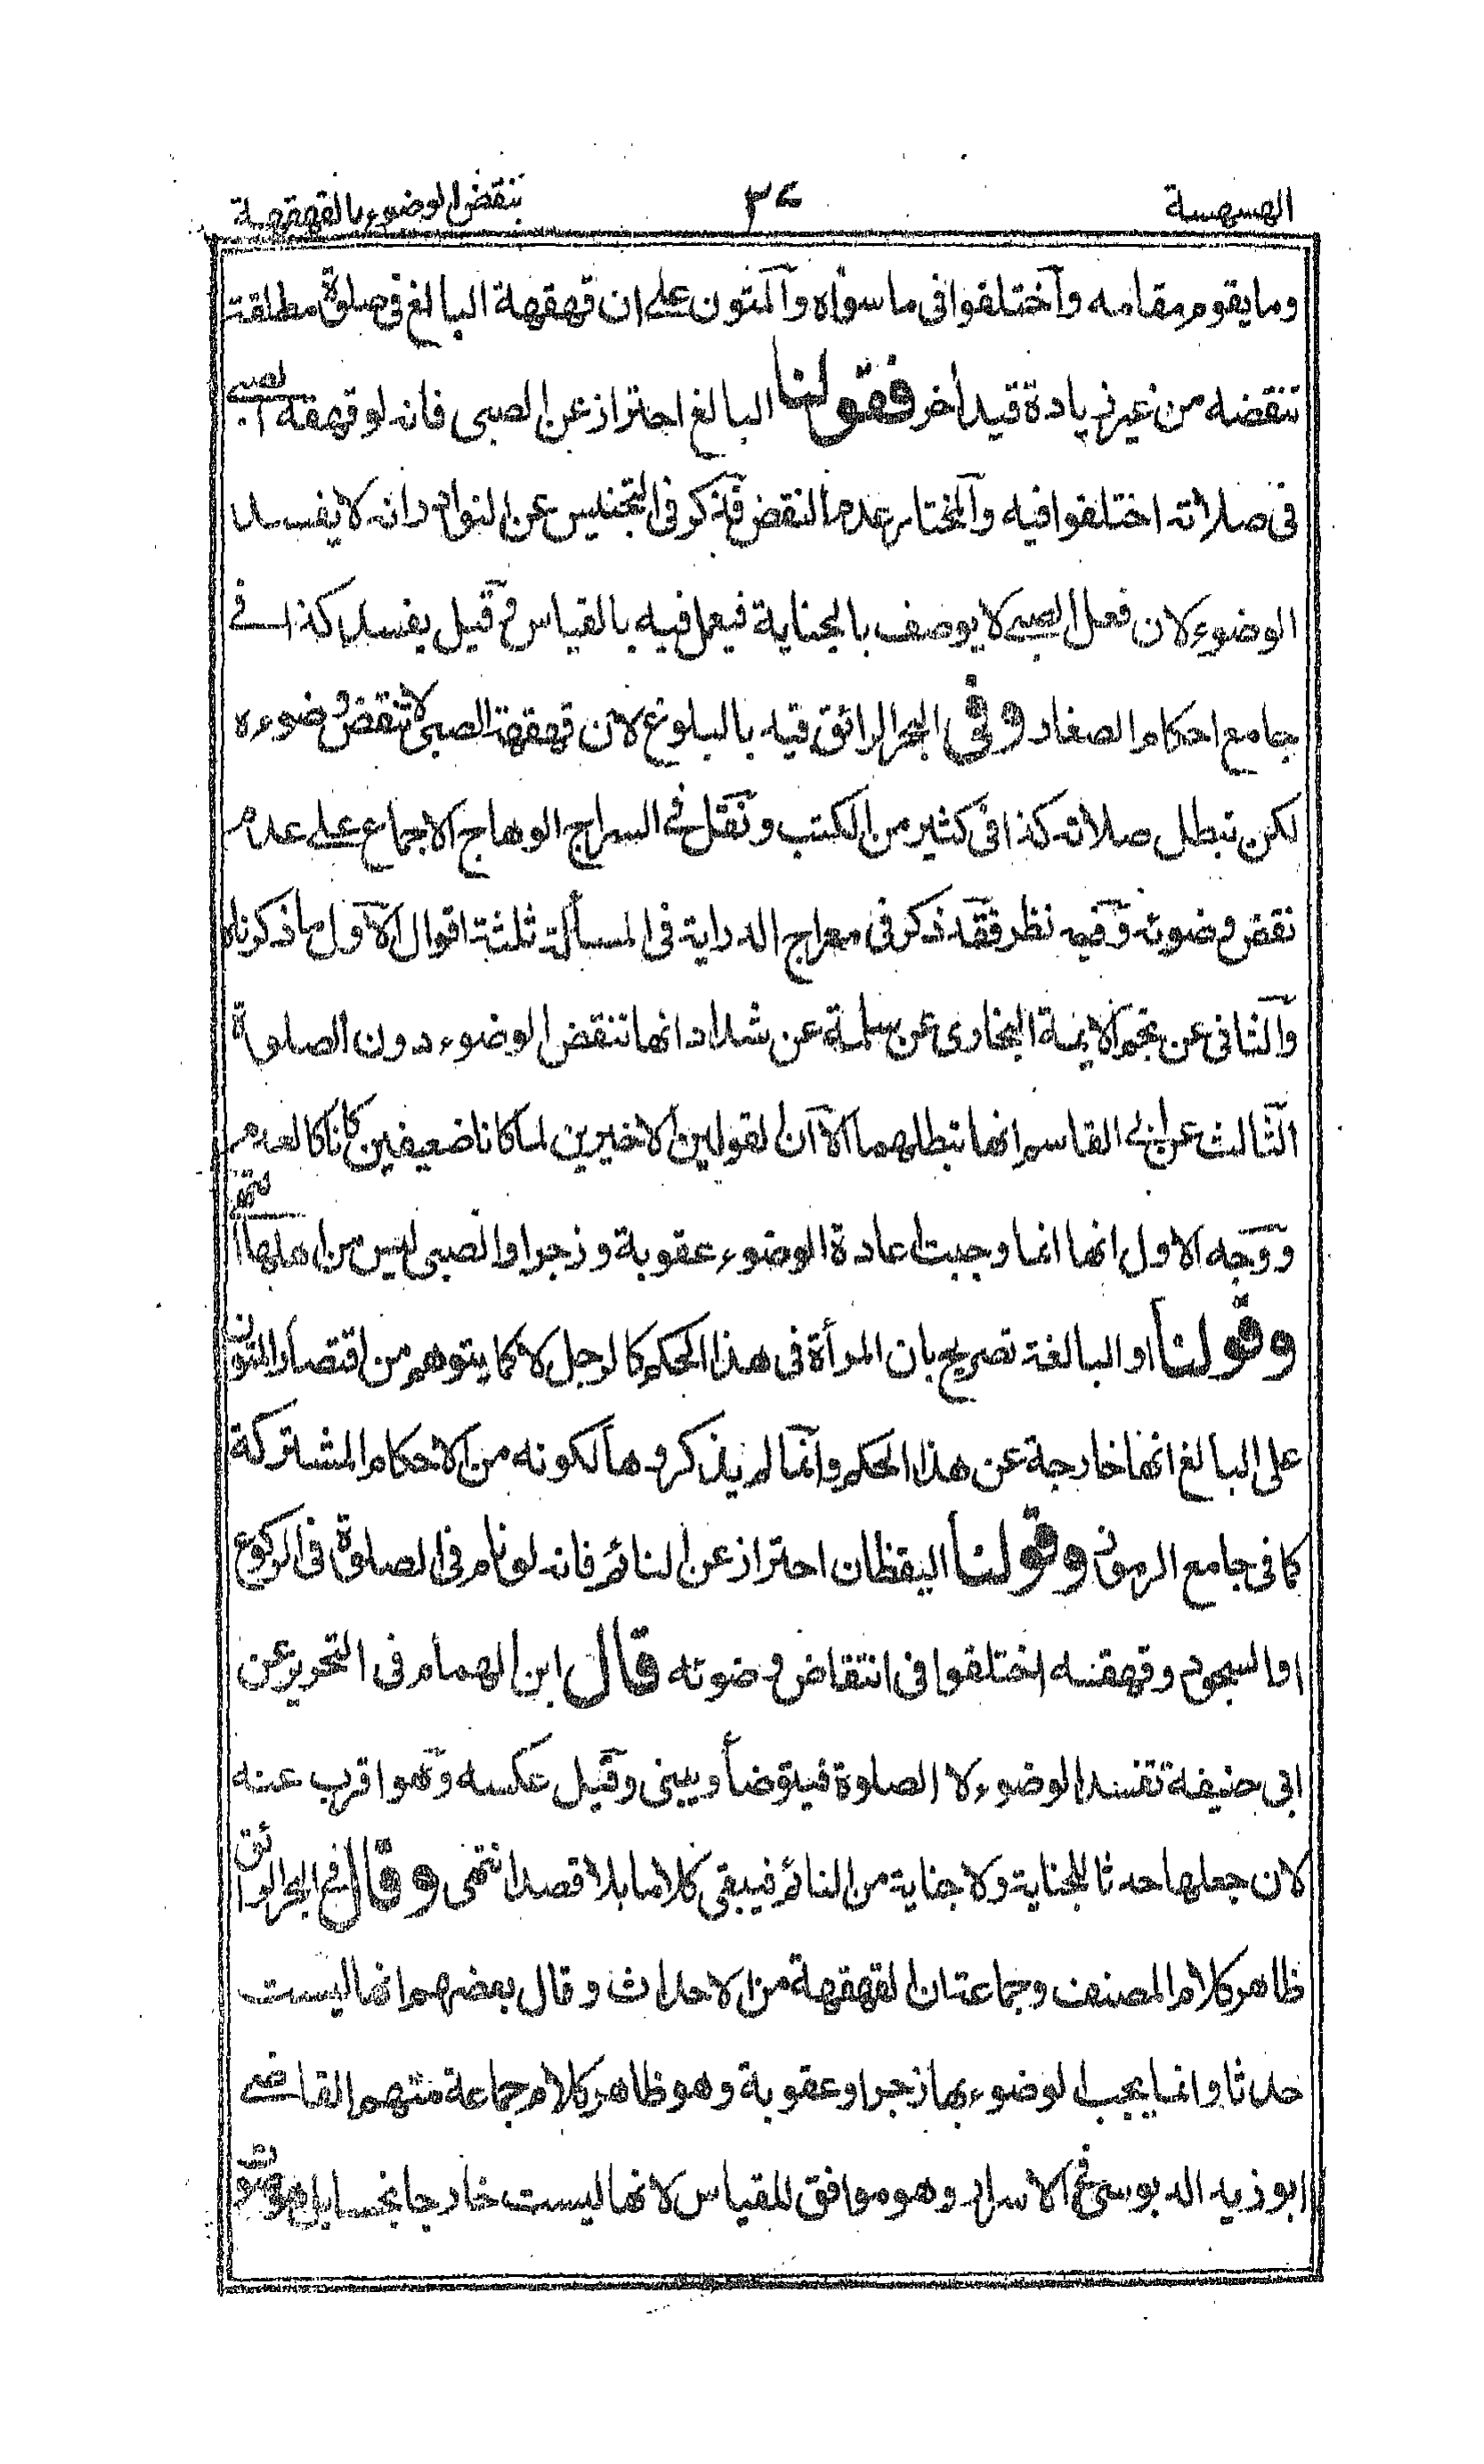 الهسهسة
بنقض الوضوء بالقهقهة
وما يقوم مقامه وآختلفوا فى ما سواه وآلمتون على ان قهقهة البالغ فى صلوة مطلقة
تنقضه من غير زيادة قيد أخر فقولنا البالغ احتراز عن الصبى فانه لو قهقه الصبى
فى صلاته اختلفوا فيه وآلمختار عدم النقض فذكر فى التجنيس عن النوادر انه لا يفسد
الوضوء لان فعل الصبى لا يوصف بالجناية فيعمل فيه بالقياس وقيل يفسد كذا فى
جامع احكام الصغار وفى البحر الرائق قيد بالبلوغ لان قهقهة الصبى لا تنقض وضوءه
لكن تبطل صلاته كذا فى كثير من الكتب ونقل فى السراج الوهاج الاجماع على عدم
نقض وضوئه وفيه نظر فقد ذكر فى معراج الدراية فى المسألة ثلثة اقوال الاول ما ذكرناه
والثانى عن نجم الايمة البخارى عن سلمة عن شداد انها تنقض الوضوء دون الصلوة
الثالث عن ابى القاسم انها تبطلهما الا ان القولين الاخيرين لما كانا ضعيفين كانا كالعدم
ووجه الاول انها انما وجبت اعادة الوضوء عقوبة وزجرا والصبى ليس من اهلها انتهى
وقولنا او البالغة تصريح بان المرأة فى هذا الحكم كالرجل لا كما يتوهم من اقتصار المتون
على البالغ انها خارجة عن هذا الحكم وانما لم يذكروها لكونه من الاحكام المشتركة
كما فى جامع الرموز وقولنا اليقظان احتراز عن النائم فانه لو نام فى الصلوة فى الركوع
او السجود وقهقه اختلفوا فى انتقاض وضوئه قال ابن الهمام فى التحرير عن
ابى حنيفة تفسد الوضوء لا الصلوة فيتوضأ ويبنى وقيل عكسه وهو اقرب عنه
لان جعلها حدثا للجناية ولا جناية من النائم فيبقى كلاما بلا قصد انتهى وقال فى البحر الرائق
ظاهر كلام المصنف وجماعة ان القهقهة من الاحداث وقال بعضهم انها ليست
حدثا وانما يجب الوضوء بها زجرا وعقوبة وهو ظاهر كلام جماعة منهم القاضى
ابو زيد الدبوسى فى الاسرار وهو موافق للقياس لانها ليست خارجا نجسا بل هو صوت